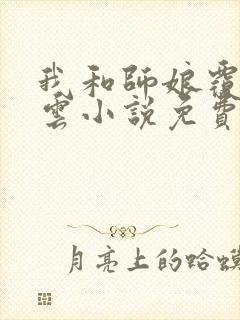 我和師娘覆
雲小説免費
月亮上的蛤蟆